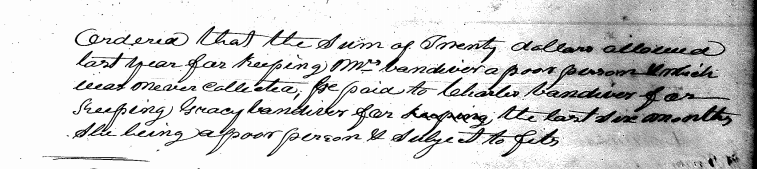 Ordered that the Sum of Twenty dollars allowed
last year for keeping Mrs Vandiver a poor person which
was never collected, be paid to Charles Vandiver for
keeping Gracy Vandiver for keeping, the last six months
She being a poor person & subject to fits